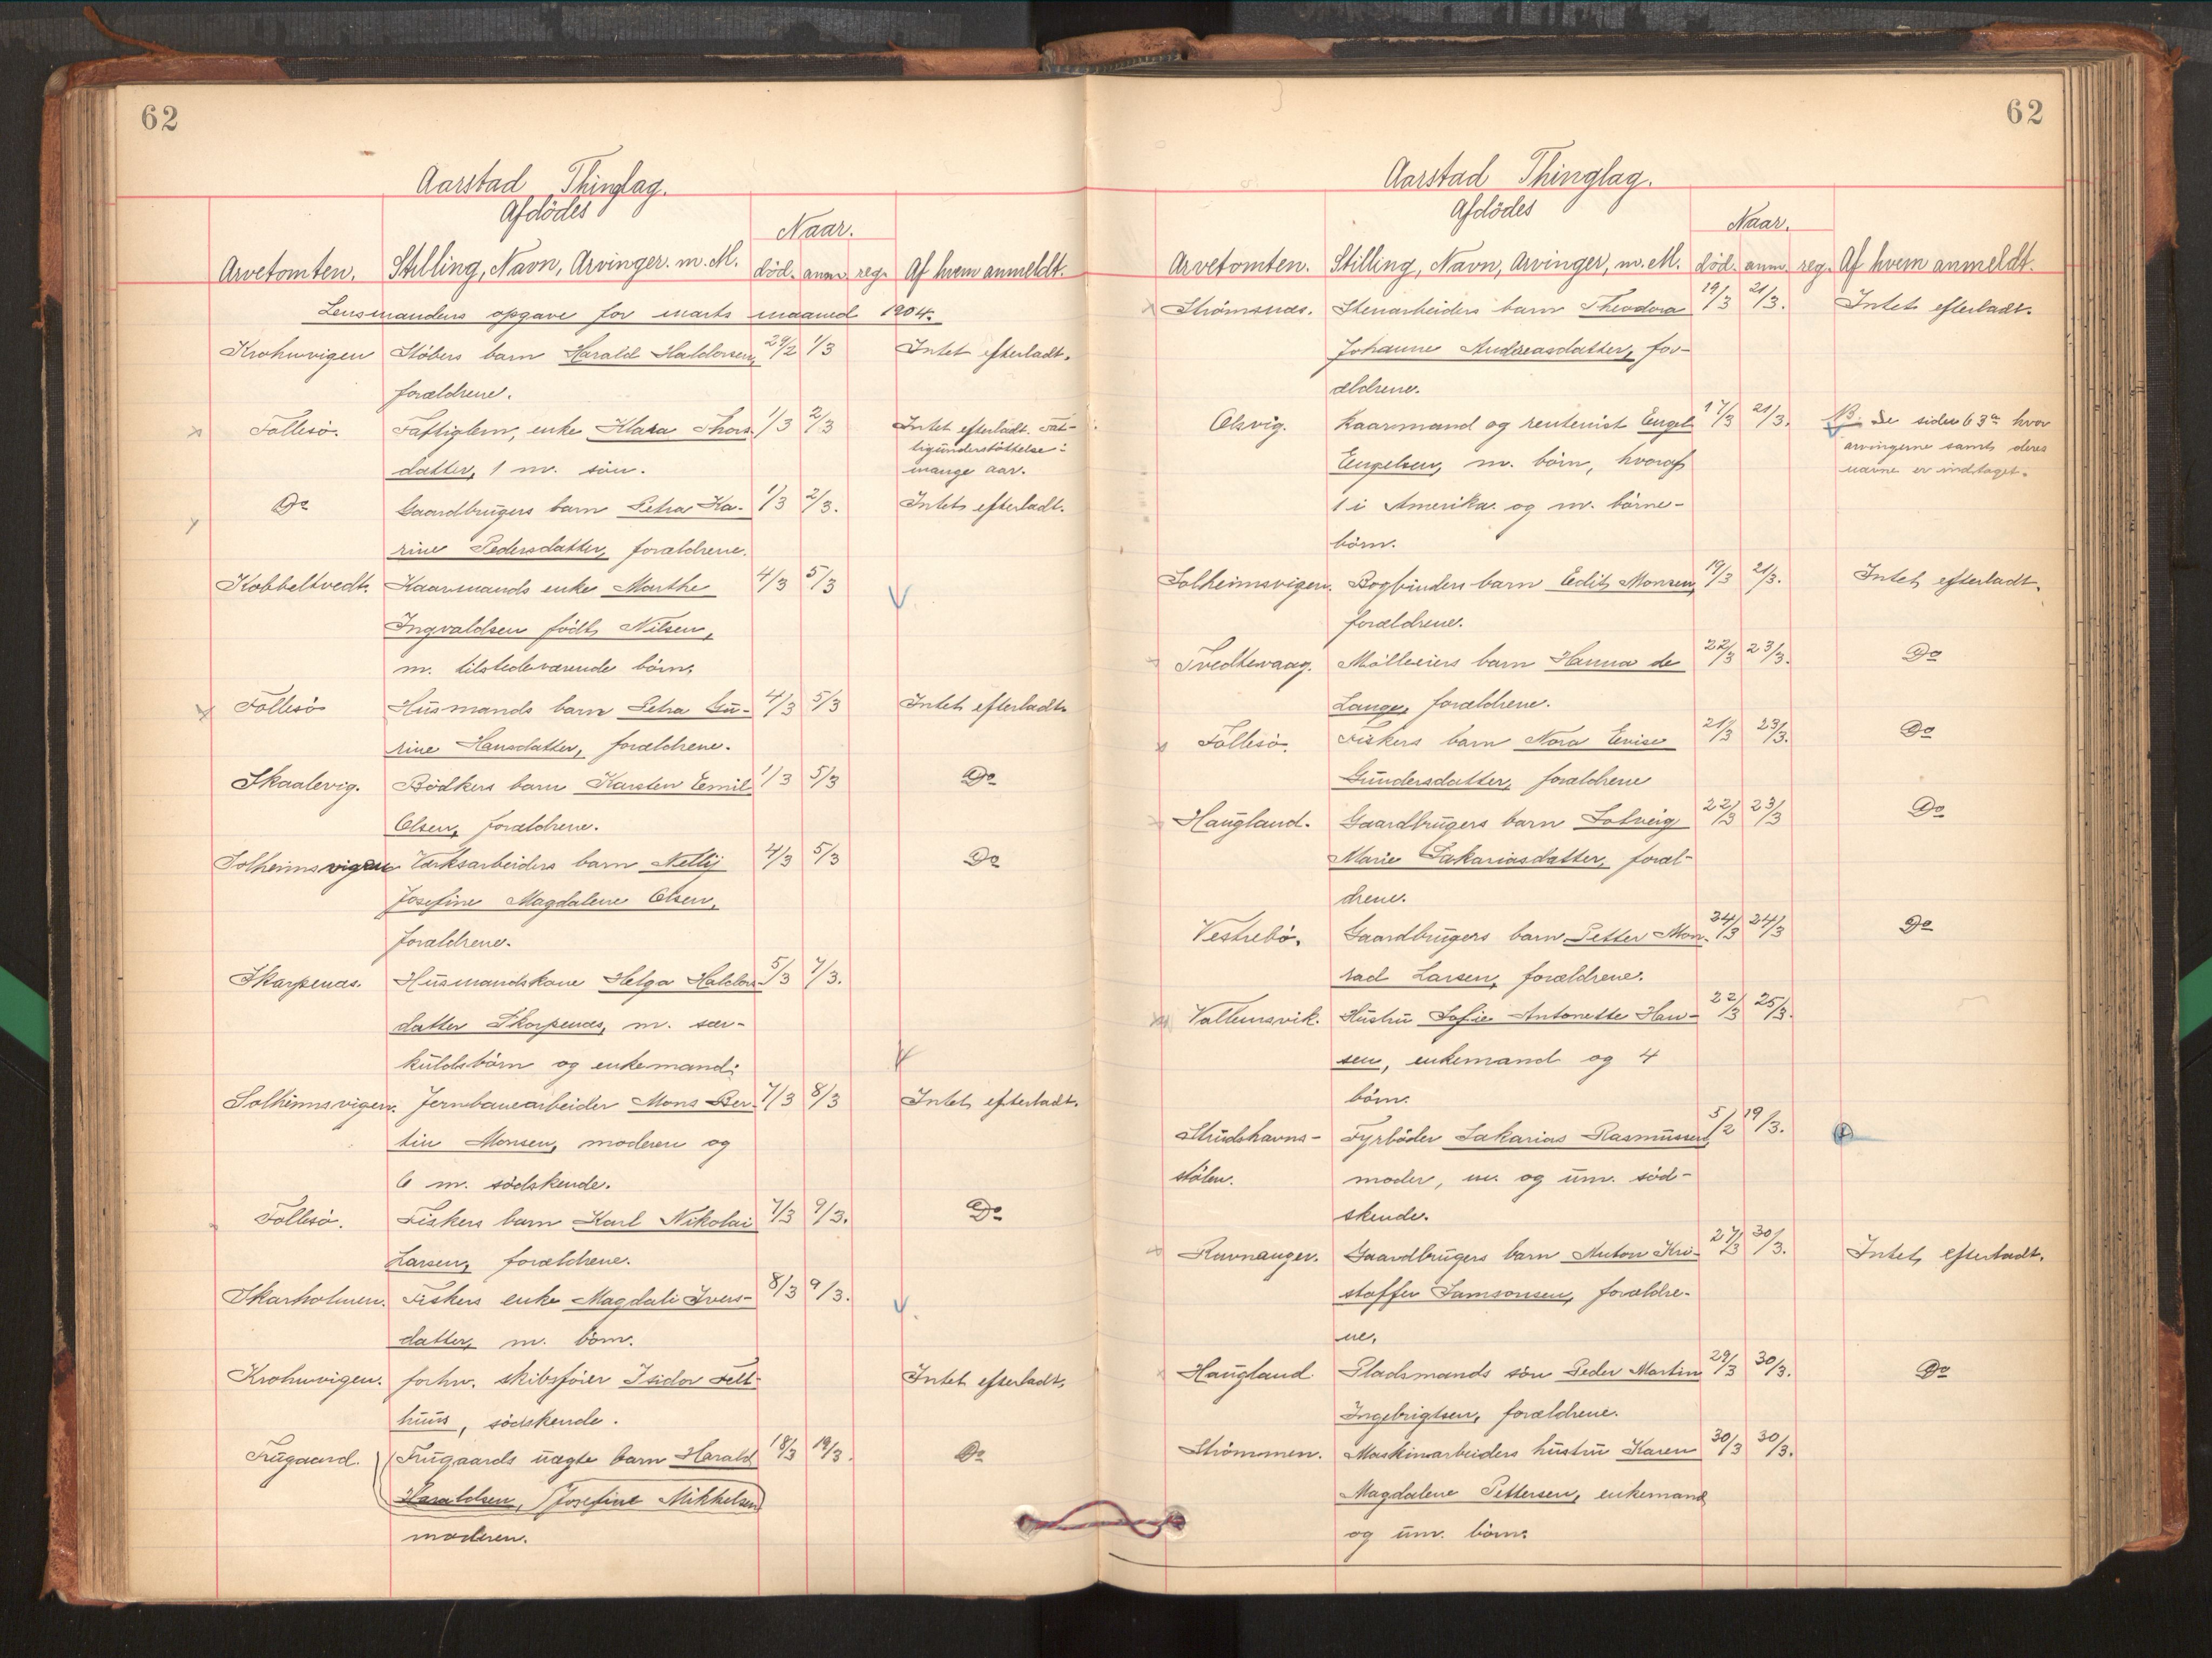 62
Aarstad Thinglag.
Afdödes
Naar.
Arvetomten. Stilling, Navn, Arvinger. m. M. död. anm. reg. Af hvem anmeldt.
Lensmandens opgave for marts maaned 1904.
Krohnvigen Stöbers barn Harald Haldorsen, 29/2 1/3 Intet efterladt.
forældrene.
Follesö. Fattiglem, enke Klara Thors- 1/3 2/3 Intet efterladt. Fat-
tigunderstöttelse i
datter, 1 m. sön. mange aar.
Do Gaardbrugers barn Petra Ka- 1/3 2/3. Intet efterladt.
rine Pedersdatter, forældrene.
Kobbeltvedt. Kaarmands enke Marthe 4/3 5/3
Ingvaldsen födt Nilsen,
m. tilstedeværende börn.
Follesö Husmands barn Petra Gu- 4/3 5/3 Intet efterladt.
rine Hansdatter, forældrene.
Skaalevig. Bödkers barn Karsten Emil 1/3 5/3 Do
Olsen, forældrene.
Solheimsvigen Værksarbeiders barn Nelly 4/3 5/3 Do
Josefine Magdalene Olsen,
forældrene.
Skarpenæs. Husmandskone Helga Haldors- 5/3 7/3.
datter Skorpenæs, m. sær-
kuldsbörn og enkemand.
Solheimsvigen. Jernbanearbeider Mons Ber- 7/3 8/3 Intet efterladt.
tin Monsen, moderen og
6 m. södskende.
Follesö. Fiskers barn Karl Nikolai 7/3 9/3. Do
Larsen, forældrene.
Skarholmen. Fiskers enke Magdali Ivers- 8/3 9/3.
datter, m. börn.
Krohnvigen. forhv. skibsförer Isidor Felt- Intet efterladt.
huus, södskende.
Frugaard. Frugaards uægte barn Harald 18/3 19/3. Do
Haraldsen, Josefine Mikkelsen
moderen.
62
Aarstad Thinglag.
Afdödes
Naar.
Arvetomten. Stilling, Navn, Arvinger, m. M. död. anm. reg. Af hvem anmeldt.
Strömsnæs. Stenarbeiders barn Theodora 19/3 21/3. Intet efterladt.
Johanne Andreasdatter, for-
ældrene.
Olsvig. Kaarmand og rentenist Engel 17/3 21/3. NB. Se siden 63a hvor
arvingerne samt deres
Engelsen, m. börn, hvoraf navne er indtaget.
1 i Amerika og m. börne-
börn.
Solheimsvigen. Bogbinders barn Edit Monsen, 19/3 21/3. Intet efterladt.
forældrene.
Tvedtevaag. Mölleeiers barn Hanna de 22/3 23/3. Do
Lange, forældrene.
Follesö. Fiskers barn Nora Enise 21/3 23/3. Do
Gundersdatter, forældrene
Haugland. Gaardbrugers barn Solveig 22/3 23/3 Do
Marie Sakariasdatter, foræl-
drene.
Vestrebö. Gaardbrugers barn Petter Mon- 24/3 24/3 Do
rad Larsen, forældrene.
Vallemsvik. Hustru Sofie Antonette Han- 22/3 25/3.
sen, enkemand og 4
börn.
Strudshavns- Fyrböder Sakarias Rasmussen, 5/2 19/3.
stölen. moder, m. og um. söd-
skende.
Ravnanger. Gaardbrugers barn Anton Kri- 27/3 30/3. Intet efterladt.
stoffer Samsonsen, forældre-
ne.
Haugland. Pladsmands sön Peder Martin 29/3 30/3. Do
Ingebrigtsen, forældrene.
Strömmen. Maskinarbeiders hustru Karen 30/3 30/3.
Magdalene Pettersen, enkemand
og um. börn.